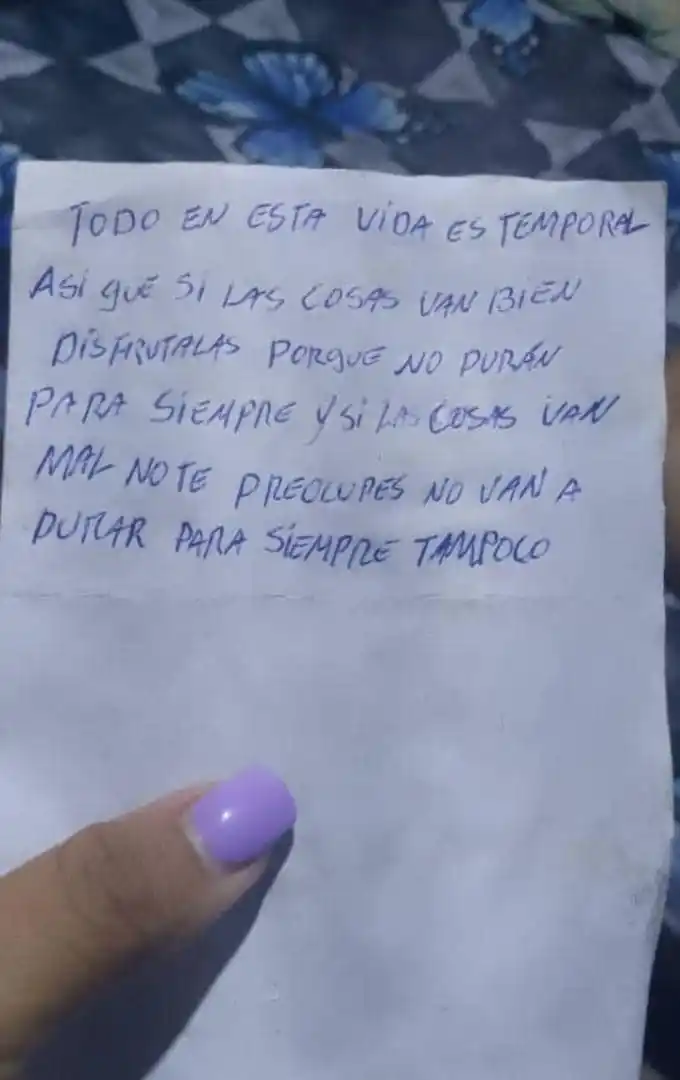 TODO EN ESTA VIDA ES TEMPORAL
ASI QUE SI LAS COSAS VAN BIEN
DISFRUTALAS PORQUE NO DURAN
PARA SIEMPRE Y SI LAS COSAS VAN
MAL NO TE PREOCUPES NO VAN A
DURAR PARA SIEMPRE TAMPOCO